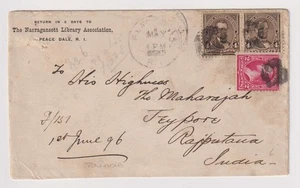 RETURN IN 5 DAYS TO
The Narragansett Library Association,
PEACE DALE, R. I.
MAY
4
4
To
His Highness
The Maharajah
Jeypore
Rajputana
India
1st June 96